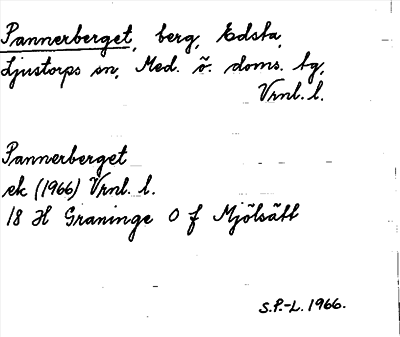 Pannerberget, berg, Edsta,
Ljustorps sn, Med. ö. doms. tg,
Vrnl. l.
Pannerberget
ek (1966) Vrnl. l.
18 H Graninge O f Mjölsätt
S.P.-L. 1966.